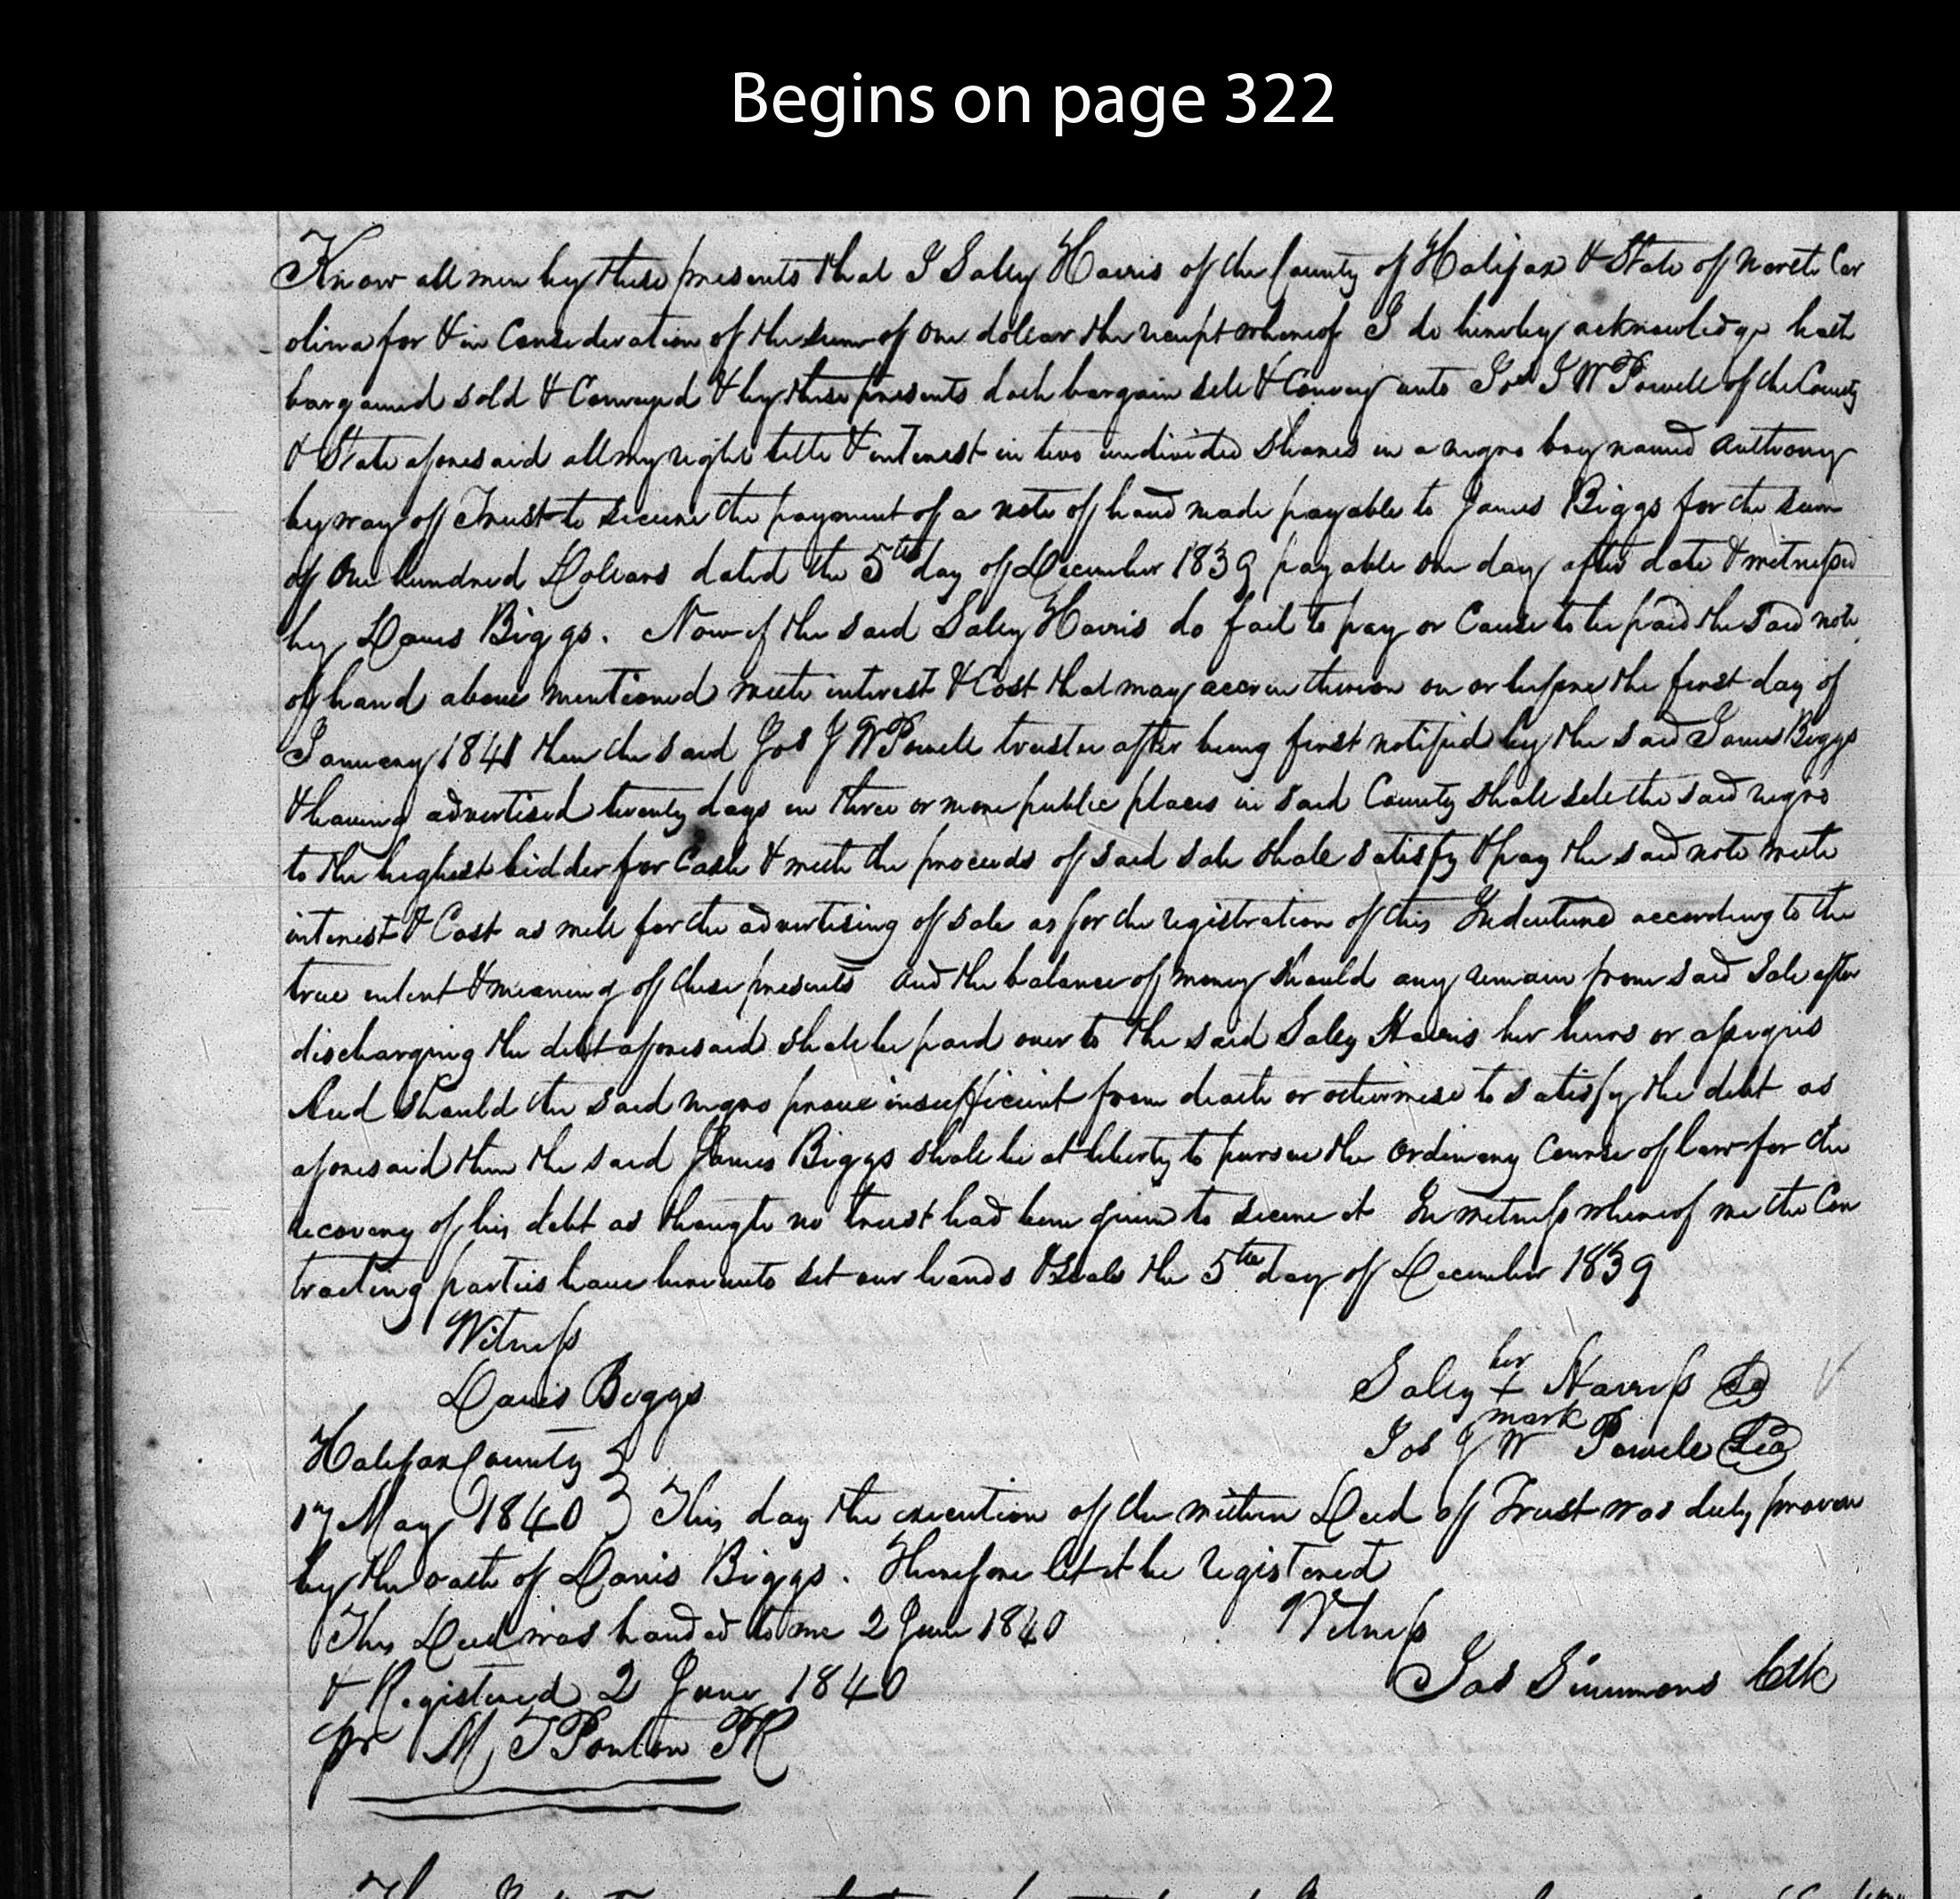 Begins on page 322
Know all men by these presents that I Saley Harris of the County of Halifax & State of North Car
olina for & in Consideration of the sum of one dollar the receipt whereof I do hereby acknowledge hath
bargained sold & Conveyed & by these presents doth bargain sell & Convey unto Jos J W Powell of the County
& State aforesaid all my right title & interest in two undivided shares in a negro boy named Anthony
by way of Trust to secure the payment of a note of hand made payable to James Biggs for the sum
of One hundred Dollars dated the 5th day of December 1839 payable one day after date & witnessed
by Davis Biggs. Now if the said Saley Harris do fail to pay or Cause to be paid the said note
of hand above mentioned with interest & Cost that may accrue thereon on or before the first day of
January 1841 then the said Jos J W Powell trustee after being first notified by the said James Biggs
& having advertised twenty days in three or more public places in said County shall sell the said negro
to the highest bidder for Cash & with the proceeds of said sale shall satisfy & pay the said note with
interest & Cost as well for the advertising of sale as for the registration of this Indenture according to the
true intent & meaning of these presents and the balance of money should any remain from said Sale after
discharging the debt aforesaid shall be paid over to the said Saley Harris her heirs or assigns
And should the said negro prove insufficient from death or otherwise to satisfy the debt as
aforesaid then the said James Biggs shall be at liberty to pursue the ordinary Course of law for the
recovery of his debt as though no trust had been given to secure it In witness whereof we the Con
tracting parties have hereunto set our hands & Seals the 5th day of December 1839
Witness
Davis Biggs
her
Saley + Harriss
mark
Jos J W Powell
Halifax County
17 May 1840 } This day the execution of the within Deed of Trust was duly proven
by the oath of Davis Biggs. Therefore let it be registered
This Deed was handed to me 2 June 1840
Witness
& Registered 2 June 1840
Jas Simmons Clk
pr M T Ponton PR